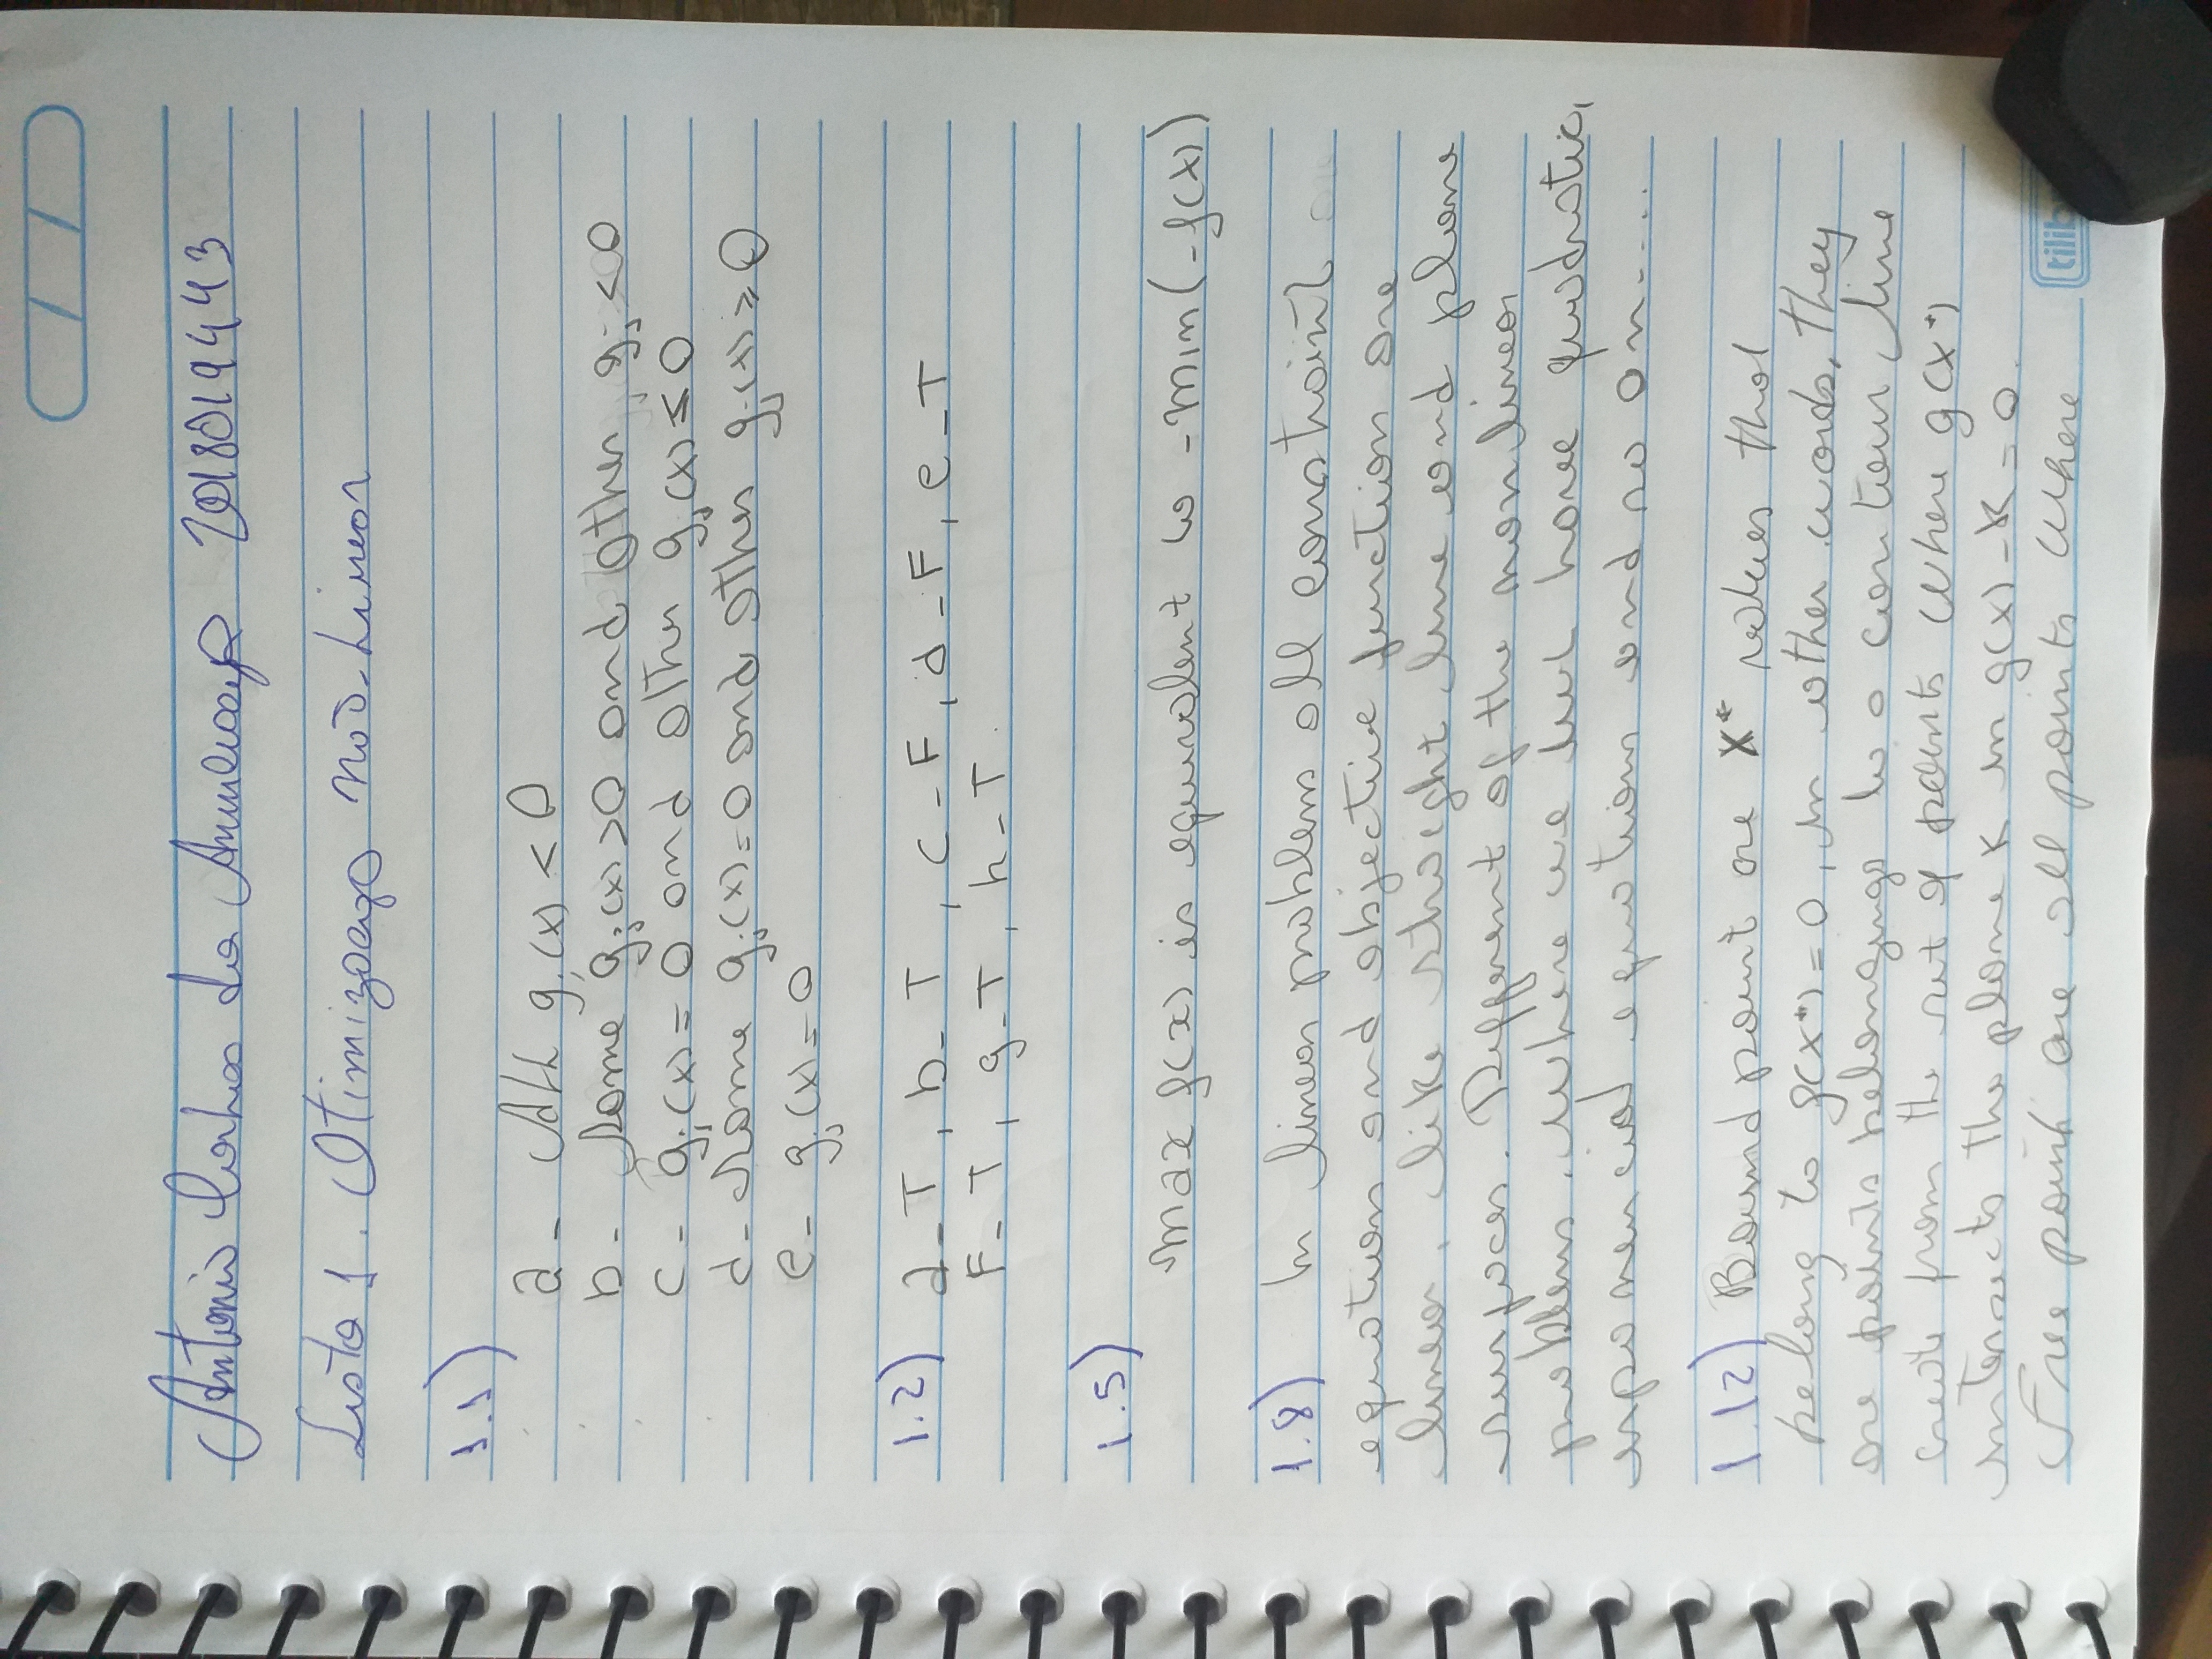 Antonio Carlos da Anunciação 2018019443
Lista 1. Otimização não-Linear
1.1)
a - All gj(x) < 0
b - Some gj(x) > 0 and other, gj < 0
c - gj(x) = 0 and other gj(x) ≤ 0
d - Some gj(x) = 0 and other gj(x) ≥ 0
e - gj(x) = 0
1.2) a - T, b - T, c - F, d - F, e - T
F - T, g - T, h - T.
1.5)
max f(x) is equivalent to -min(-f(x))
1.8) In linear problems all constraint
equation and objective function are
linear, like straight line and plane
surfaces. Different of the non linear
problems. Where we have quadratic,
exponencial equations and so on....
1.12) Bound point are X* values that
belong to g(X*) = 0, in other words, they
are points belongings to a contour line
create from the set of points where g(X*)
intersects the plane K in g(x) - K = 0.
Free point are all points where